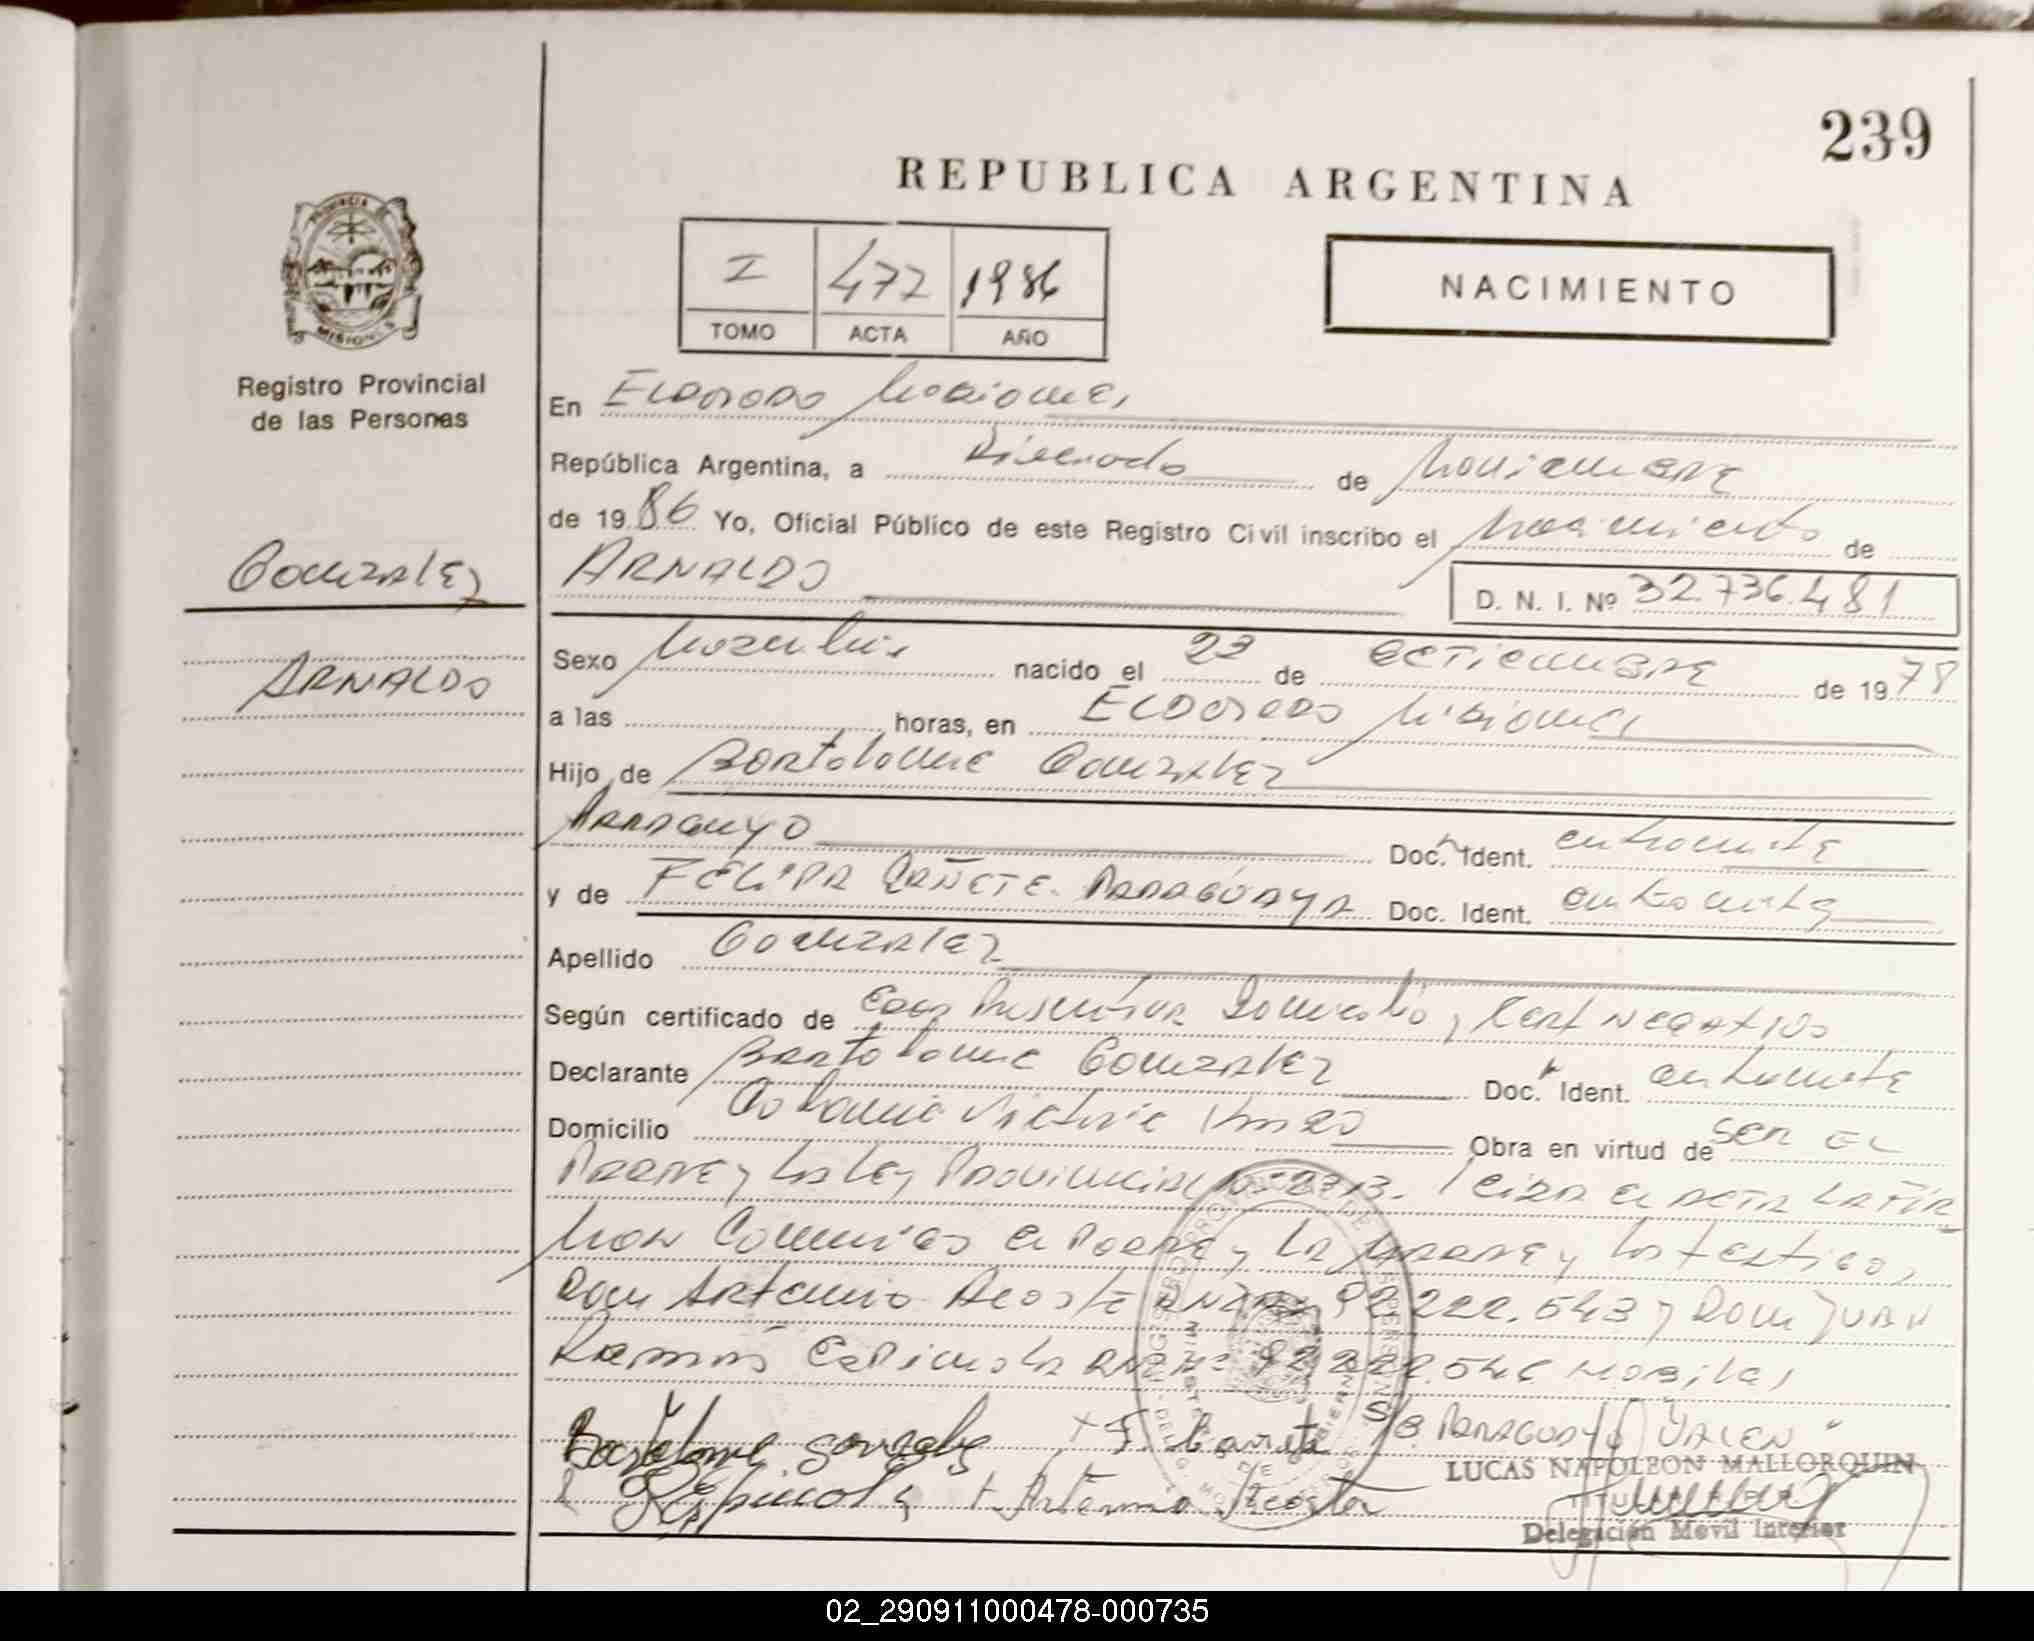 239
REPUBLICA ARGENTINA
I 472 1986
TOMO ACTA AÑO
NACIMIENTO
PROVINCIA DE
MISIONES
Registro Provincial
de las Personas
Gonzalez
ARNALDO
En Eldorado Misiones,
República Argentina, a Dieciocho de Noviembre
de 1986 Yo, Oficial Público de este Registro Civil inscribo el Nacimiento de
ARNALDO
D. N. I. Nº 32.736.481
Sexo Masculino nacido el 23 de Setiembre de 1978
a las horas, en Eldorado Misiones
Hijo de Bartolome Gonzalez
Paraguayo Doc. Ident.
y de FELIPA CAÑETE. PARAGUAYA Doc. Ident.
Apellido Gonzalez
Según certificado de Domicilio, Cert Negativo
Declarante Bartolome Gonzalez Doc. Ident.
Domicilio Colonia Victoria Obra en virtud de SER EL
PADRE y la Ley Provincial Nº Leida el ACTA LA FIR
man Conmigo el Padre y la Madre y los testigos
Don Artemio Acosta 92.222.543 y Don JUAN
Ramon Espinola
Bartolome Gonzalez + F. Cañete S/B PARAGUAYO VALEN
LUCAS NAPOLEON MALLORQUIN
Espinola + Artemio Acosta
Delegación Movil Interior
02_290911000478-000735